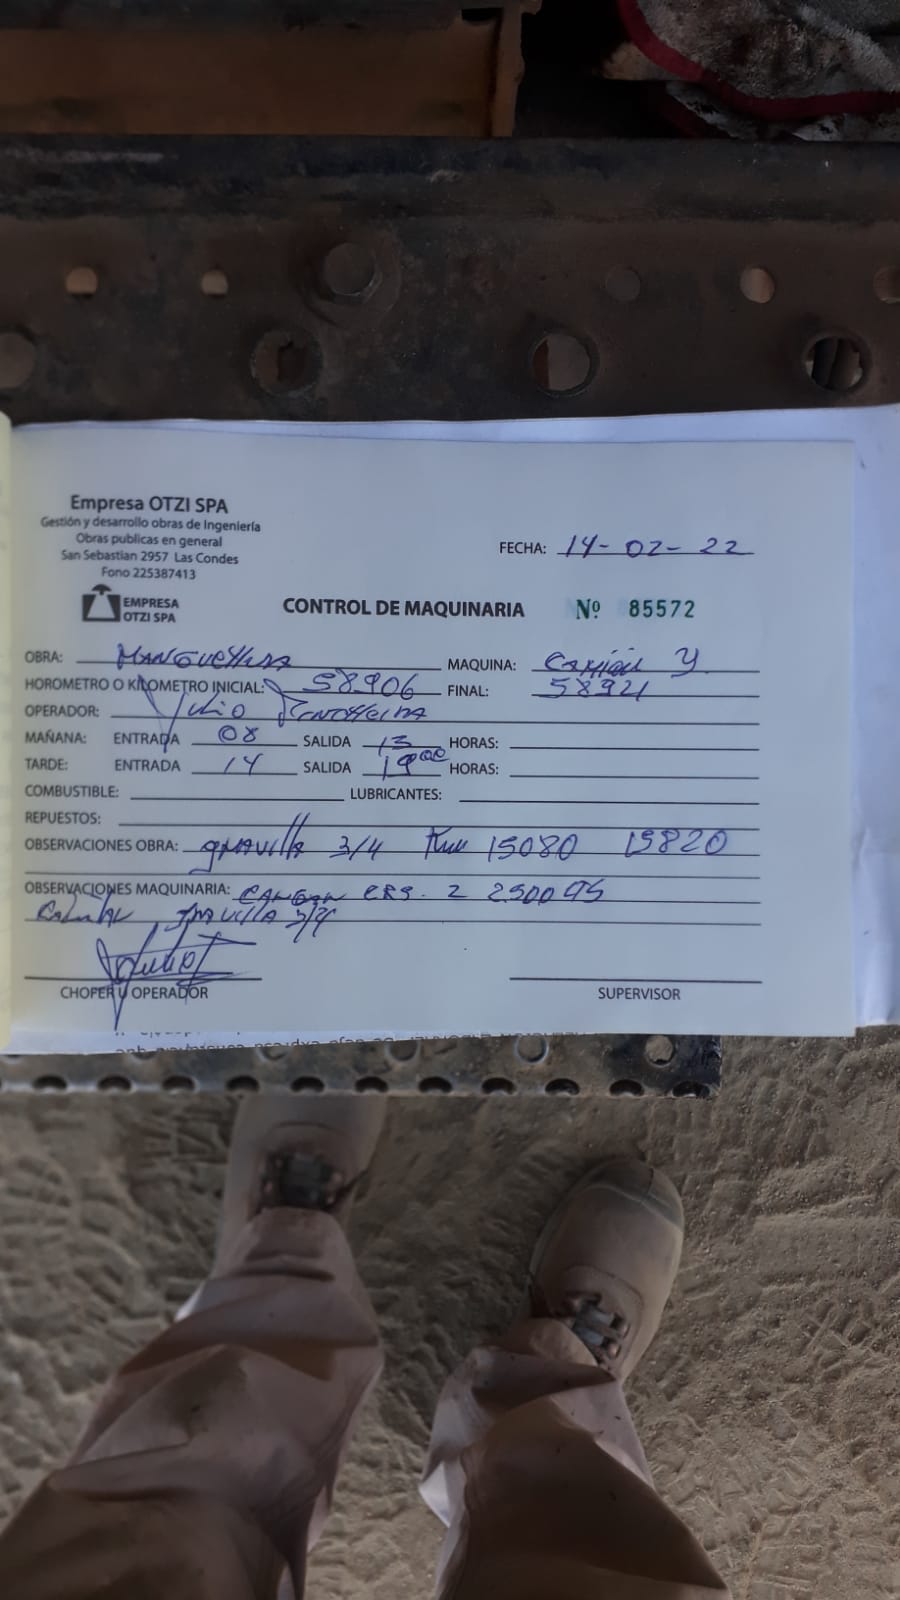 Empresa OTZI SPA
Gestión y desarrollo obras de Ingeniería
Obras publicas en general
San Sebastian 2957 Las Condes
Fono 225387413
EMPRESA
OTZI SPA
FECHA: 14-02-22
CONTROL DE MAQUINARIA Nº 85572
OBRA: MAQUINA: CAMION Y
HOROMETRO O KILOMETRO INICIAL: 58906 FINAL: 58921
OPERADOR: Julio
MAÑANA: ENTRADA 08 SALIDA 13 HORAS:
TARDE: ENTRADA 14 SALIDA 19 00 HORAS:
COMBUSTIBLE: LUBRICANTES:
REPUESTOS:
OBSERVACIONES OBRA: gravilla 3/4 Km 15080 15820
OBSERVACIONES MAQUINARIA: 2
gravilla 3/4
CHOFER U OPERADOR
SUPERVISOR